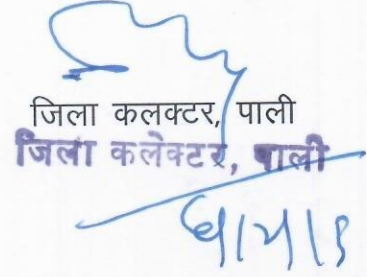 जिला कलक्टर, पाली
जिला कलेक्टर, पाली